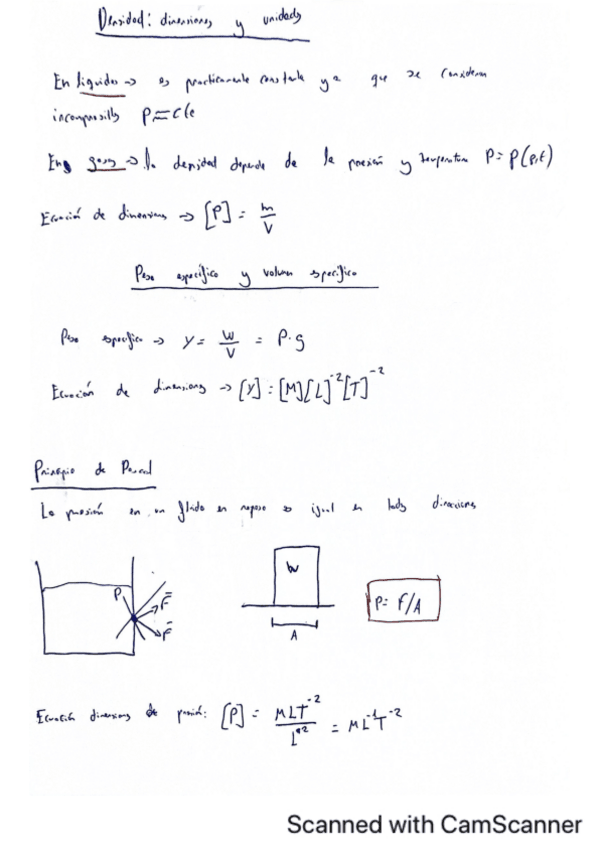 Densidad: dimensiones y unidades
En líquidos → es practicamente constante ya que se consideran
incompresibles ρ = cte
En gases → la densidad depende de la presión y temperatura ρ = ρ(p,t)
Ecuación de dimensiones → [ρ] = m/V
Peso específico y volumen específico
Peso específico → γ = W/V = ρ·g
Ecuación de dimensiones → [γ] = [M][L]⁻²[T]⁻²
Principio de Pascal
La presión en un fluido en reposo es igual en todas direcciones
P F⃗ F⃗
W
A
P = F/A
Ecuación dimensiones de presión: [P] = MLT⁻²/L² = ML⁻¹T⁻²
Scanned with CamScanner